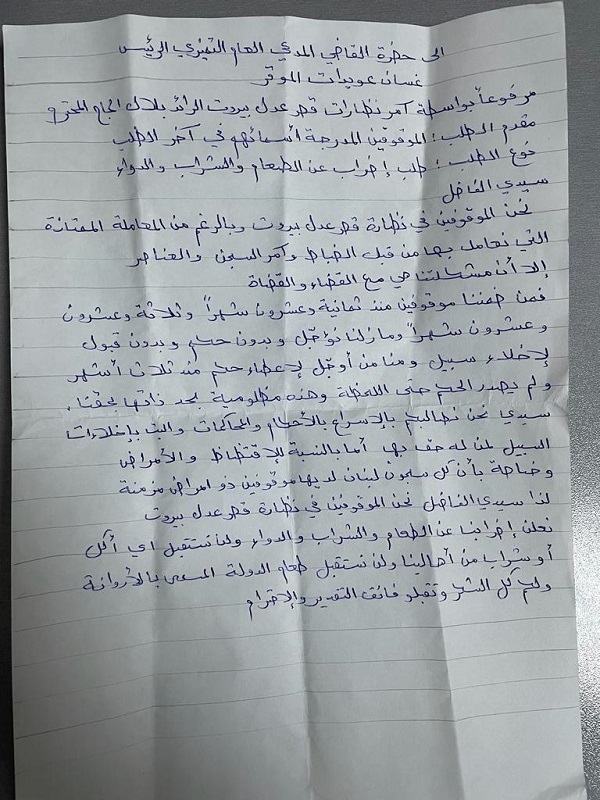 الى حضرة القاضي المدعي العام التميزي الرئيس
غسان عويدات الموقر
مرفوعاً بواسطة آمر نظارات قصر عدل بيروت الرائد بلال الحاج المحترم
مقدم الطلب: الموقوفين المدرجة أسمائهم في آخر الطلب
نوع الطلب: طلب إضراب عن الطعام والشراب والدواء
سيدي الفاضل
نحن الموقوفين في نظارة قصر عدل بيروت وبالرغم من المعاملة الممتازة
التي نعامل بها من قبل الضباط وآمر السجن والعناصر
إلا أن مشكلتنا هي مع القضاء والقضاة
فمن ضمننا موقوفين منذ ثمانية وعشرون شهراً وثلاثة وعشرون
وعشرون شهراً ومازلنا نؤجل وبدون حكم وبدون قبول
لإخلاء سبيل ومنا من أوجل لإعطاء حكم منذ ثلاث أشهر
ولم يصدر الحكم حتى اللحظة وهذه مظلومية بحد ذاتها بحقنا.
سيدي نحن نطالبكم بالإسراع بالأحكام والمحاكمات والبت بإخلاءات
السبيل لمن له حق بها أما بالنسبة للإقتظاظ والأمراض
وخاصة بأن كل سجون لبنان لديها موقوفين ذو امراض مزمنة
لذا سيدي الفاضل نحن الموقوفين في نظارة قصر عدل بيروت
نعلن إضرابنا عن الطعام والشراب والدواء ولن نستقبل اي أكل
أو شراب من أهالينا ولن نستقبل طعام الدولة المسمى بالأروانة
ولكم كل الشكر وتقبلو فائق التقدير والإحترام